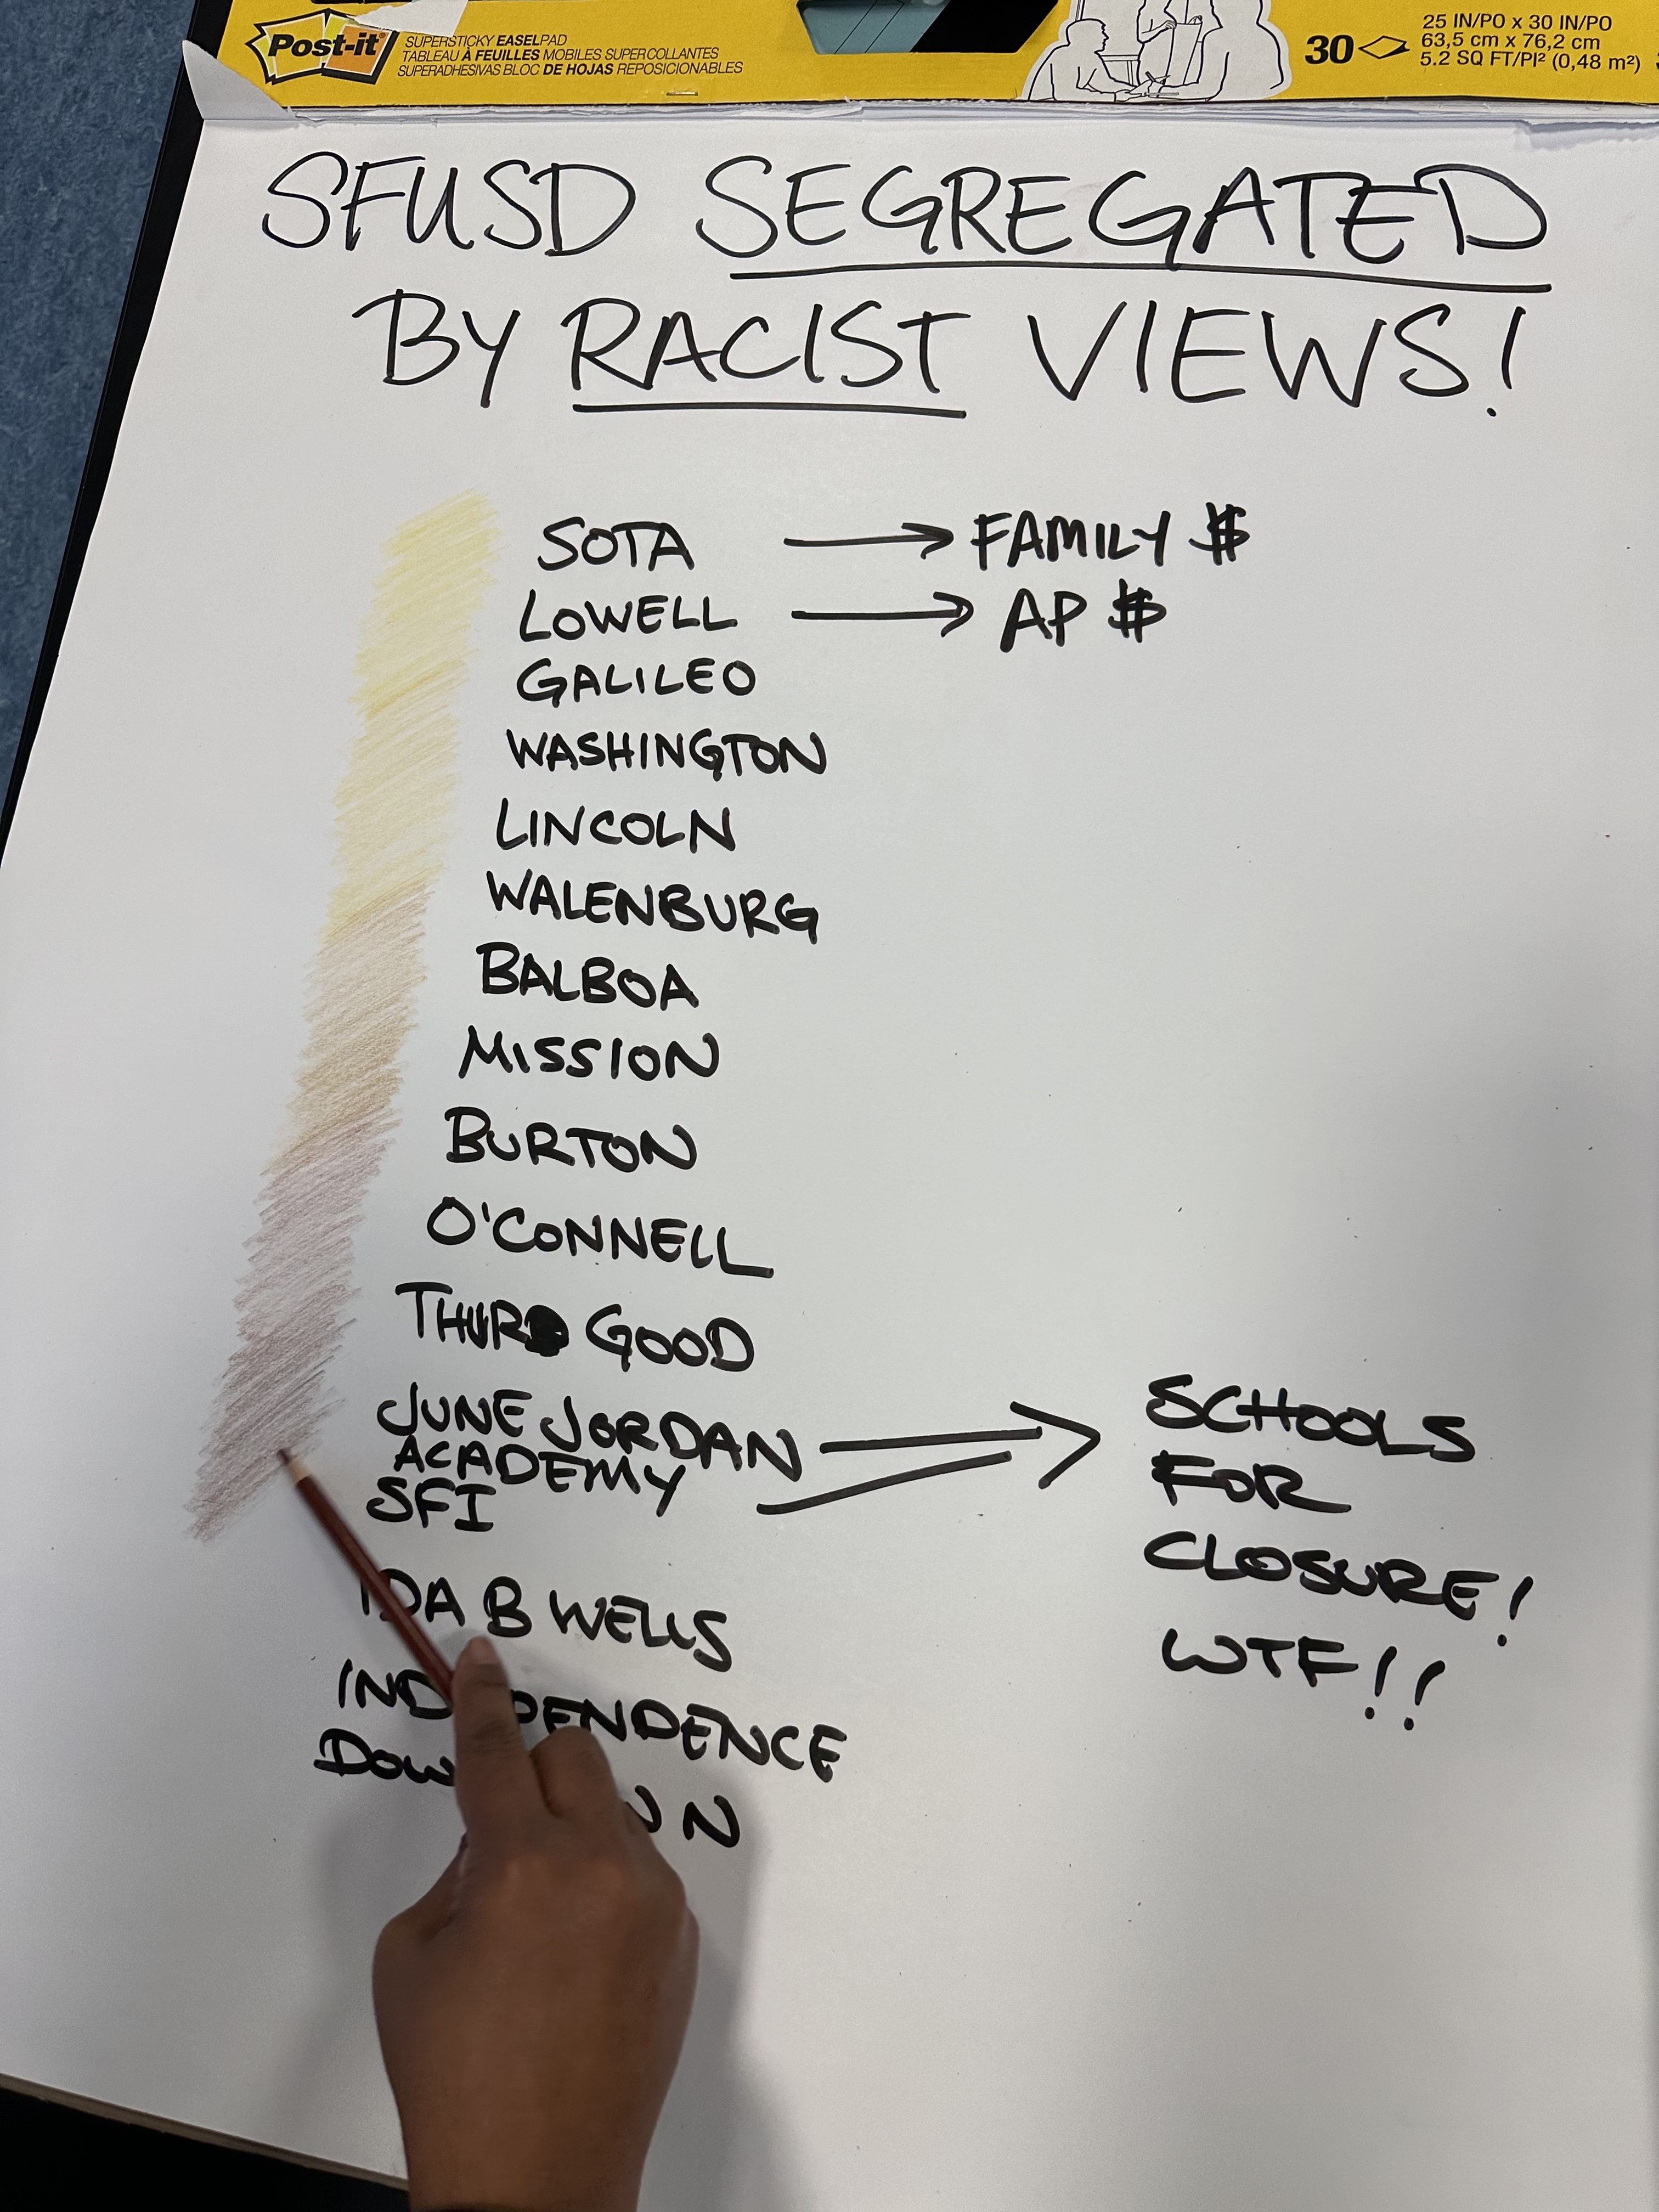 Post-it
SUPERSTICKY EASELPAD
TABLEAU À FEUILLES MOBILES SUPERCOLLANTES
SUPERADHESIVAS BLOC DE HOJAS REPOSICIONABLES
30
25 IN/PO x 30 IN/PO
63,5 cm x 76,2 cm
5.2 SQ FT/PI² (0,48 m²)
SFUSD SEGREGATED
BY RACIST VIEWS!
SOTA → FAMILY $
LOWELL → AP $
GALILEO
WASHINGTON
LINCOLN
WALENBURG
BALBOA
MISSION
BURTON
O'CONNELL
GOOD
JUNE JORDAN
ACADEMY
SFI
SCHOOLS
FOR
CLOSURE!
WTF!!
IDA B WELLS